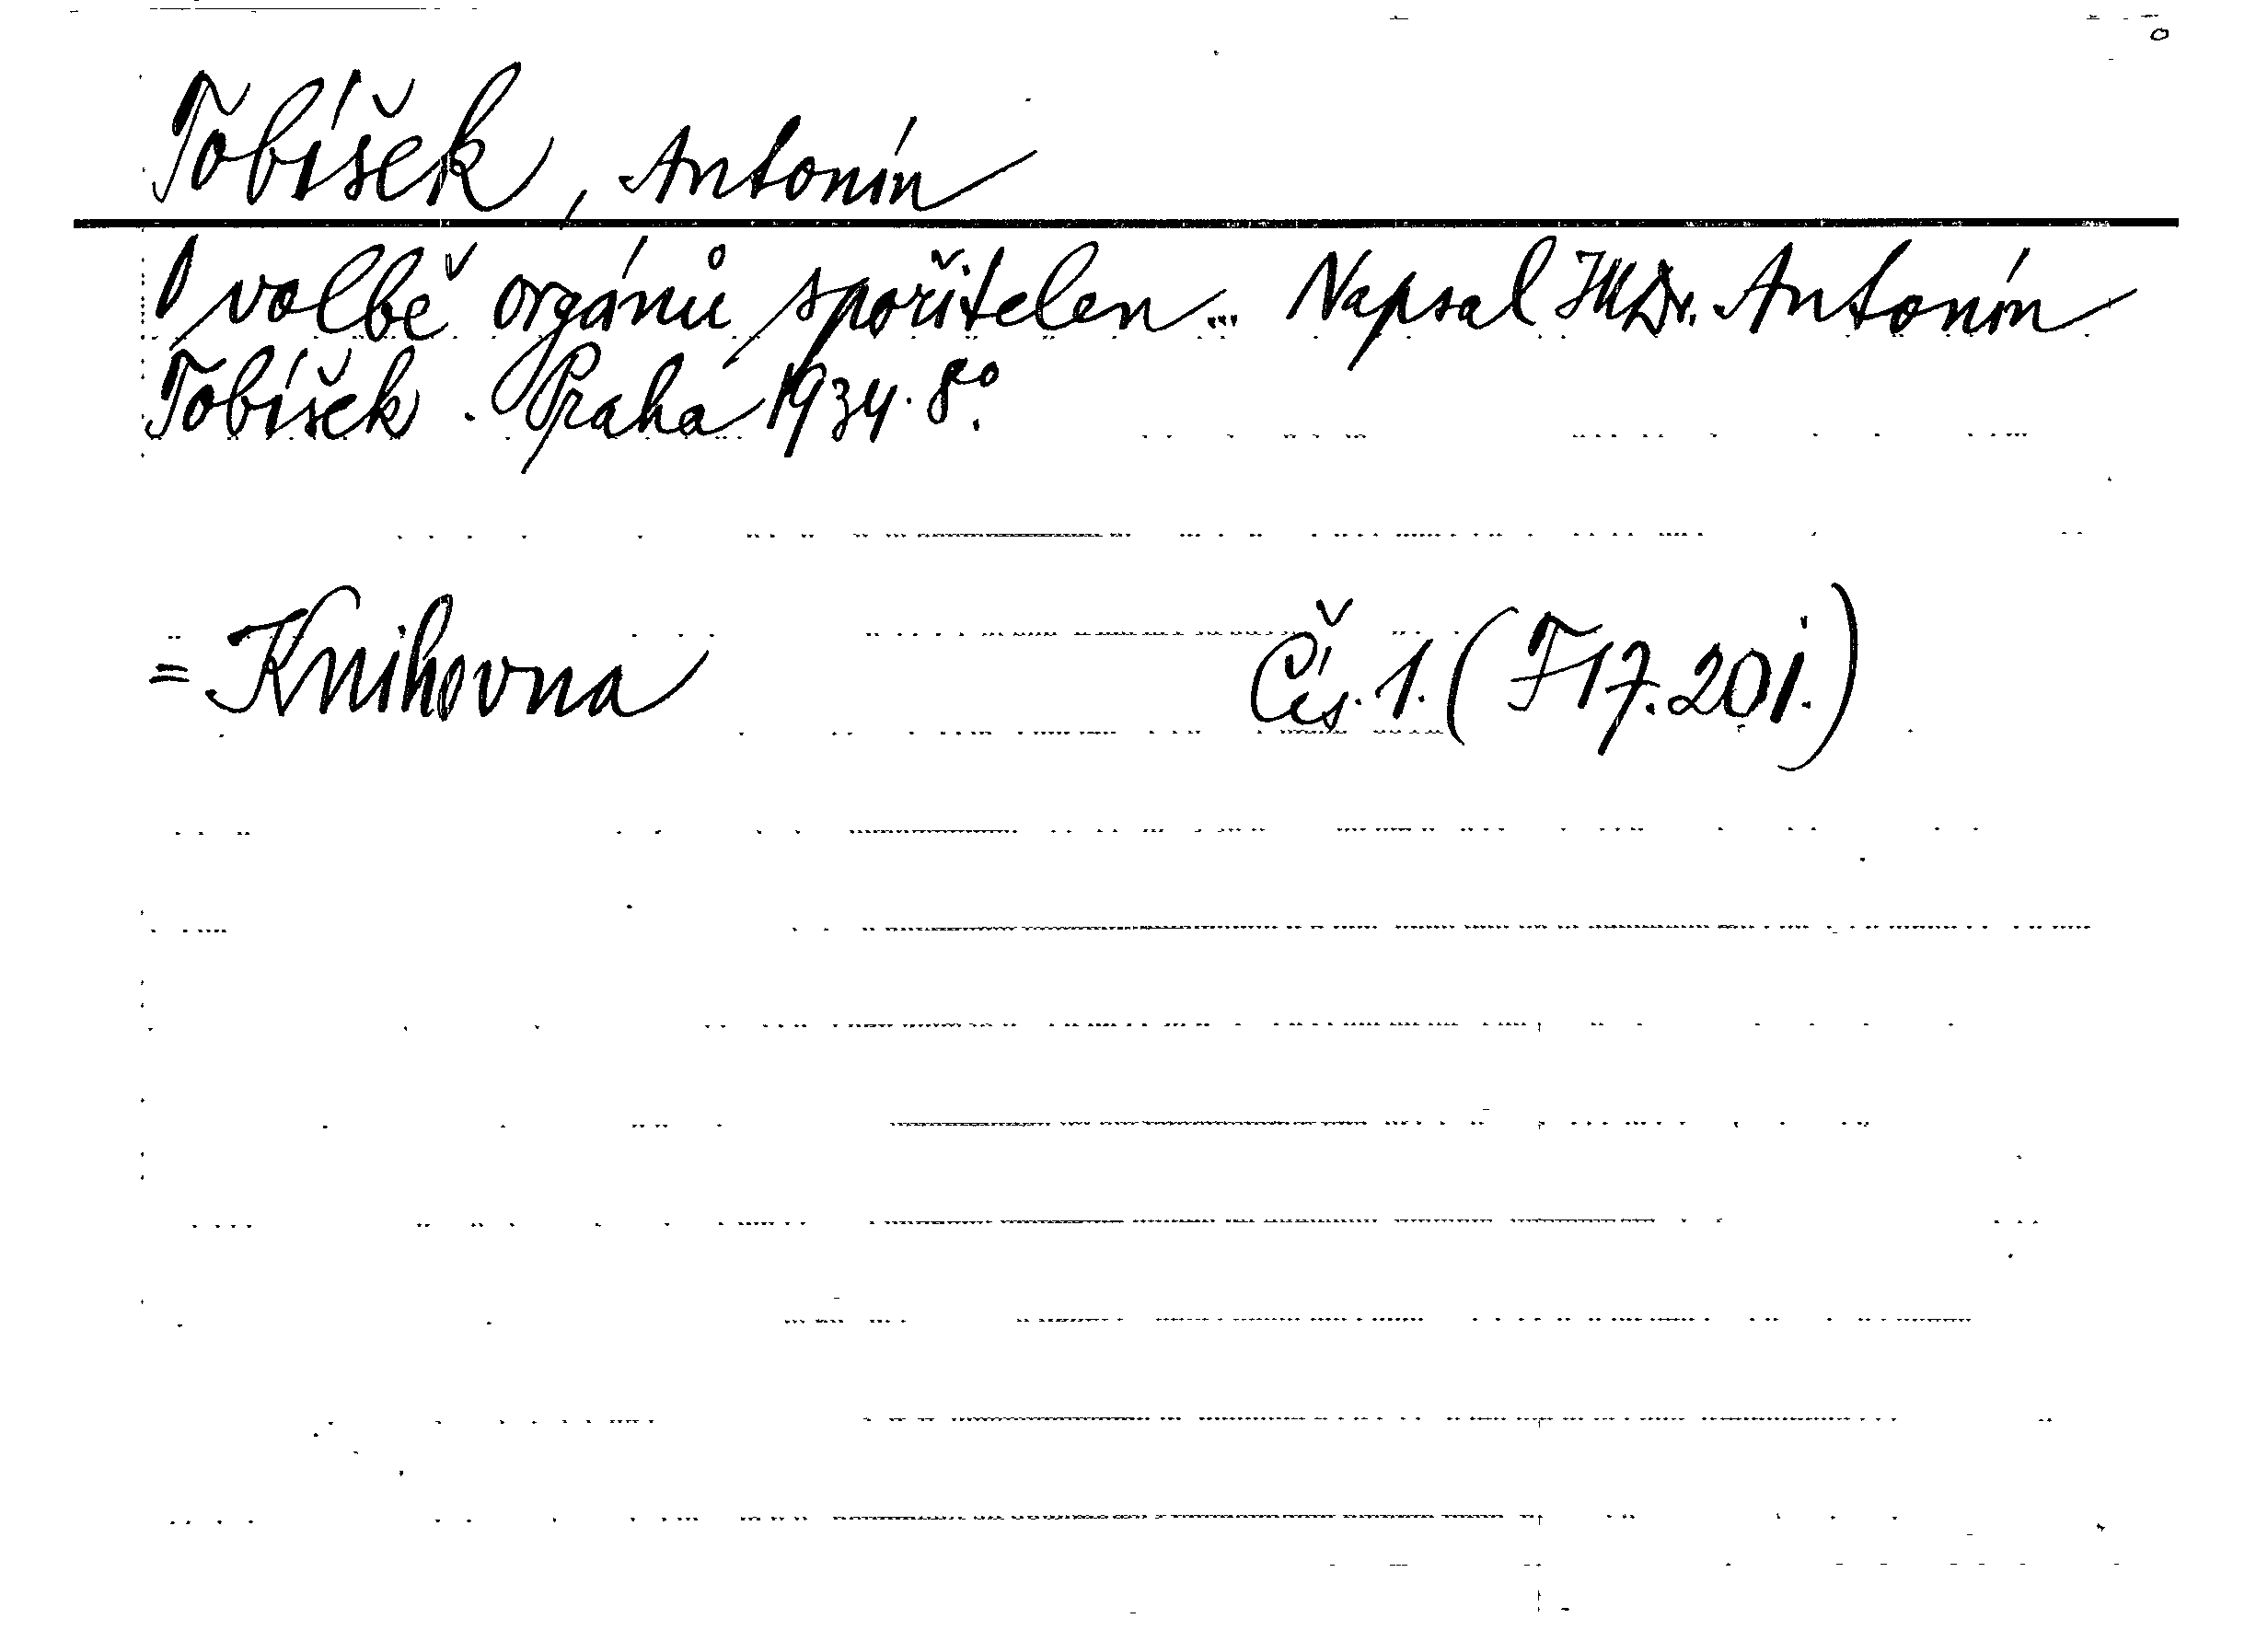 Tobíšek, Antonín
O volbě orgánů spořitelen... Napsal JUDr. Antonín
Tobíšek. Praha 1934. 8°.
= Knihovna Čís. 1. (F 17.201.)